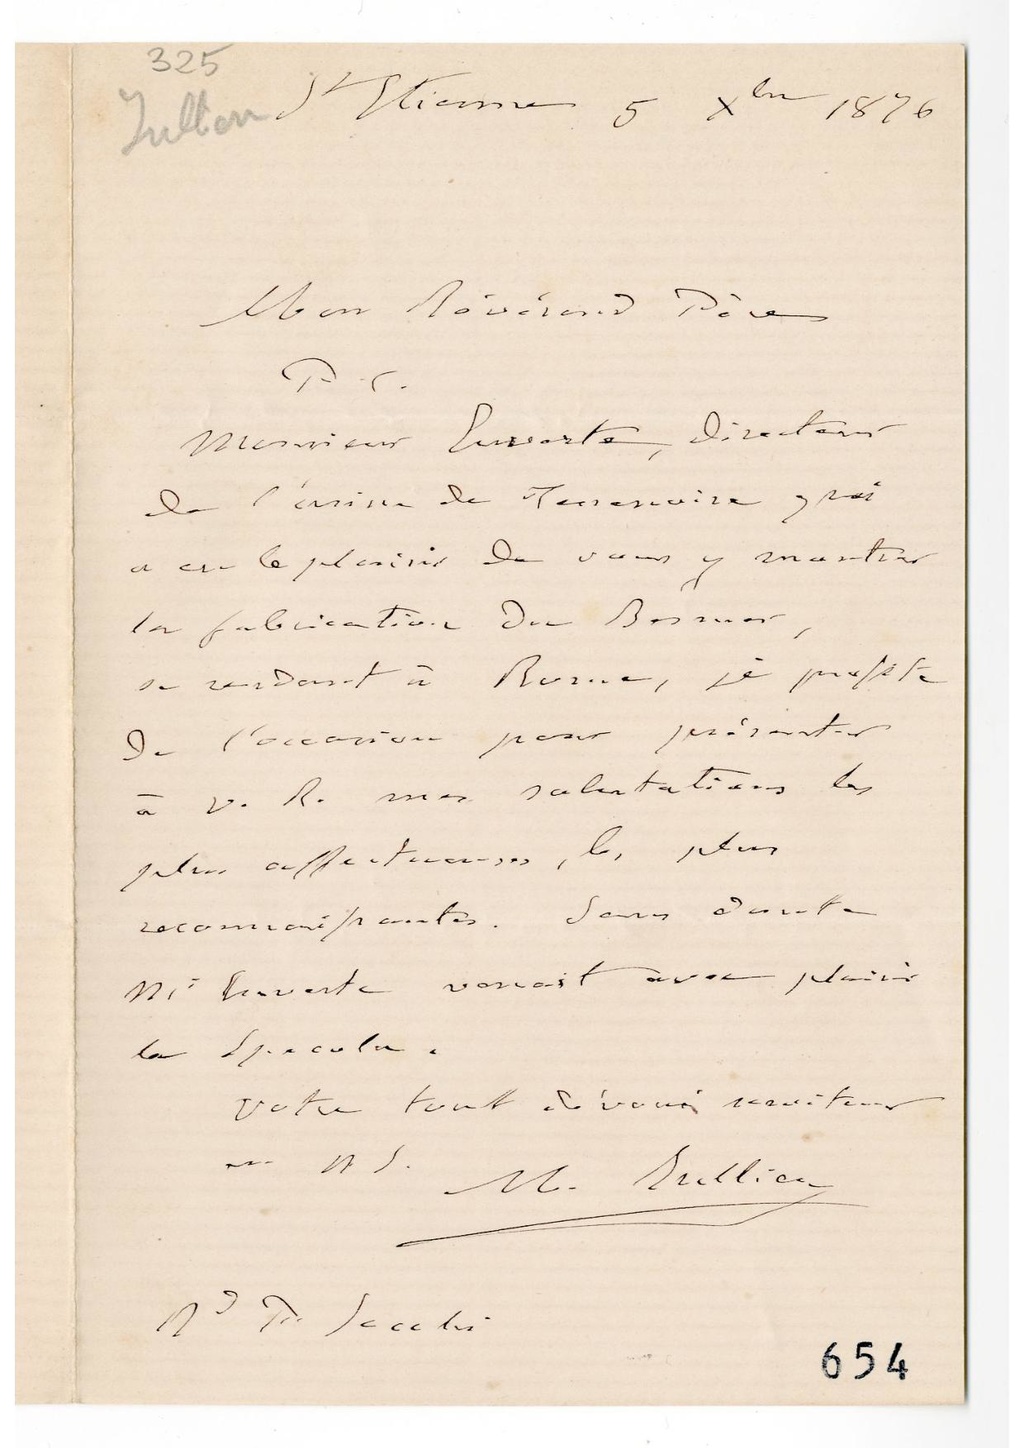 325
St Etienne 5 Xbre 1876
Mon Révérend Père
P. C.
Monsieur Euverte, Directeur
de l'usine de Terrenoire qui
a eu le plaisir de vous y montrer
la fabrication du Bessmer,
se rendant à Rome, je profite
de l'occasion pour présenter
à V. R. mes salutations les
plus affectueuses, les plus
reconnaissantes. Sans doute
Mr Euverte verrait avec plaisir
la Specola.
Votre tout dévoué serviteur
en N S.
M. Jullien
Rd P. Secchi
654